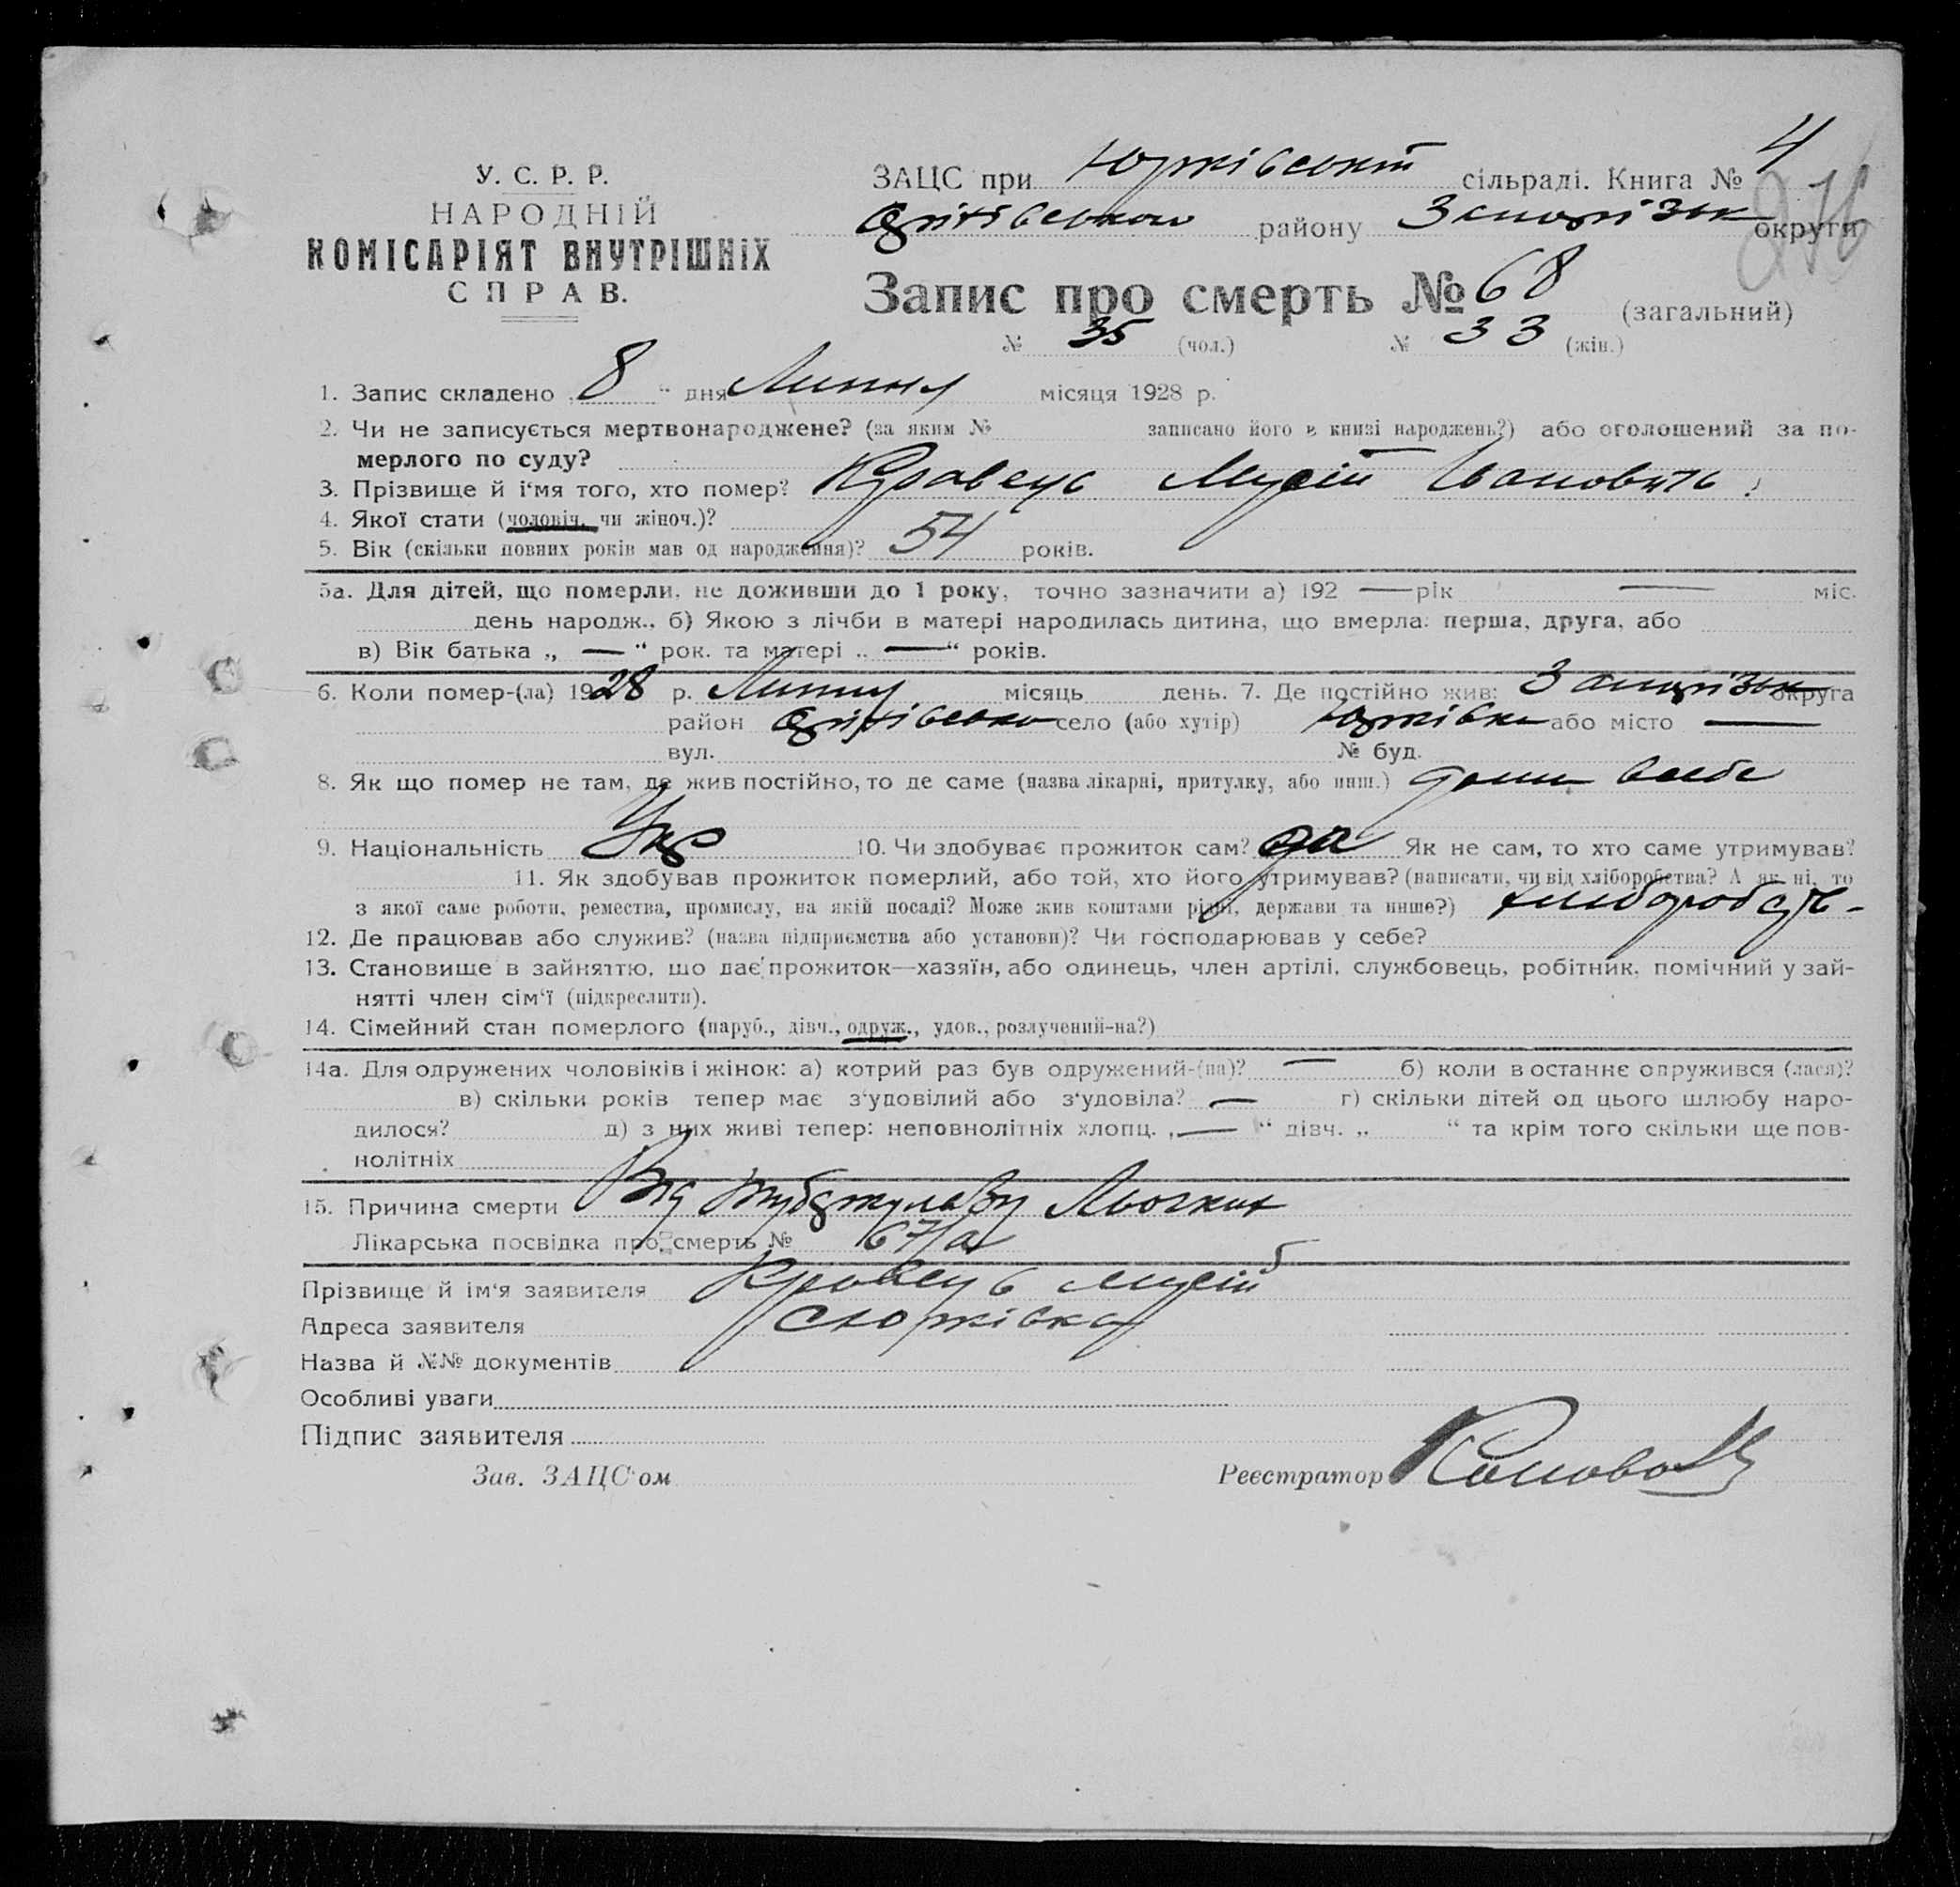 У. С. Р. Р.
НАРОДНІЙ
КОМІСАРІЯТ ВНУТРІШНІХ
СПРАВ.
ЗАЦС при Юрківській сільраді. Книга № 4
Оріхівського району Запорізьк округи
276
Запис про смерть № 68 (загальний)
№ 35 (чол.) № 33 (жін.)
1. Запис складено „8“ дня Липня місяця 1928 р.
2. Чи не записується мертвонароджене? (за яким № записано його в книзі народжень?) або оголошений за по-
мерлого по суду? —
3. Прізвище й і‘мя того, хто помер? Кравець Мусій Іванович
4. Якої стати (чоловіч. чи жіноч.)?
5. Вік (скільки повних років мав од народження)? 54 років.
5а. Для дітей, що померли, не доживши до 1 року, точно зазначити а) 192 — рік — міс.
день народж.. б) Якою з лічби в матері народилась дитина, що вмерла: перша, друга, або
в) Вік батька „ — “ рок. та матері „ — “ років.
6. Коли помер-(ла) 1928 р. Липня місяць день. 7. Де постійно жив: Запорізьк округа
район Оріхівсько село (або хутір) Юрківка або місто —
вул. № буд.
8. Як що помер не там, де жив постійно, то де саме (назва лікарні, притулку, або инш.) дома
9. Національність Укр 10. Чи здобуває прожиток сам? да Як не сам, то хто саме утримував?
11. Як здобував прожиток померлий, або той, хто його утримував? (написати, чи від хліборобства? А як ні, то
з якої саме роботи, ремества, промислу, на якій посаді? Може жив коштами рідні, держави та инше?)
12. Де працював або служив? (назва підприємства або установи)? Чи господарював у себе?
13. Становище в зайняттю, що дає прожиток—хазяїн, або одинець, член артілі, службовець, робітник, помічний у зай-
нятті член сім‘ї (підкреслити).
14. Сімейний стан померлого (паруб., дівч., одруж., удов., розлучений-на?)
14а. Для одружених чоловіків і жінок: а) котрий раз був одружений-(на)? — б) коли в останнє одружився (лася)?
в) скільки років тепер має з‘удовілий або з‘удовіла? — г) скільки дітей од цього шлюбу наро-
дилося? д) з них живі тепер: неповнолітніх хлопц. „ — “ дівч. „ “ та крім того скільки ще пов-
нолітніх
15. Причина смерти Від Льогких
Лікарська посвідка про смерть № 67/а
Прізвище й ім‘я заявителя Кравець Мусій
Адреса заявителя С Юрківка
Назва й №№ документів
Особливі уваги
Підпис заявителя
Зав. ЗАЦС‘ом Реєстратор